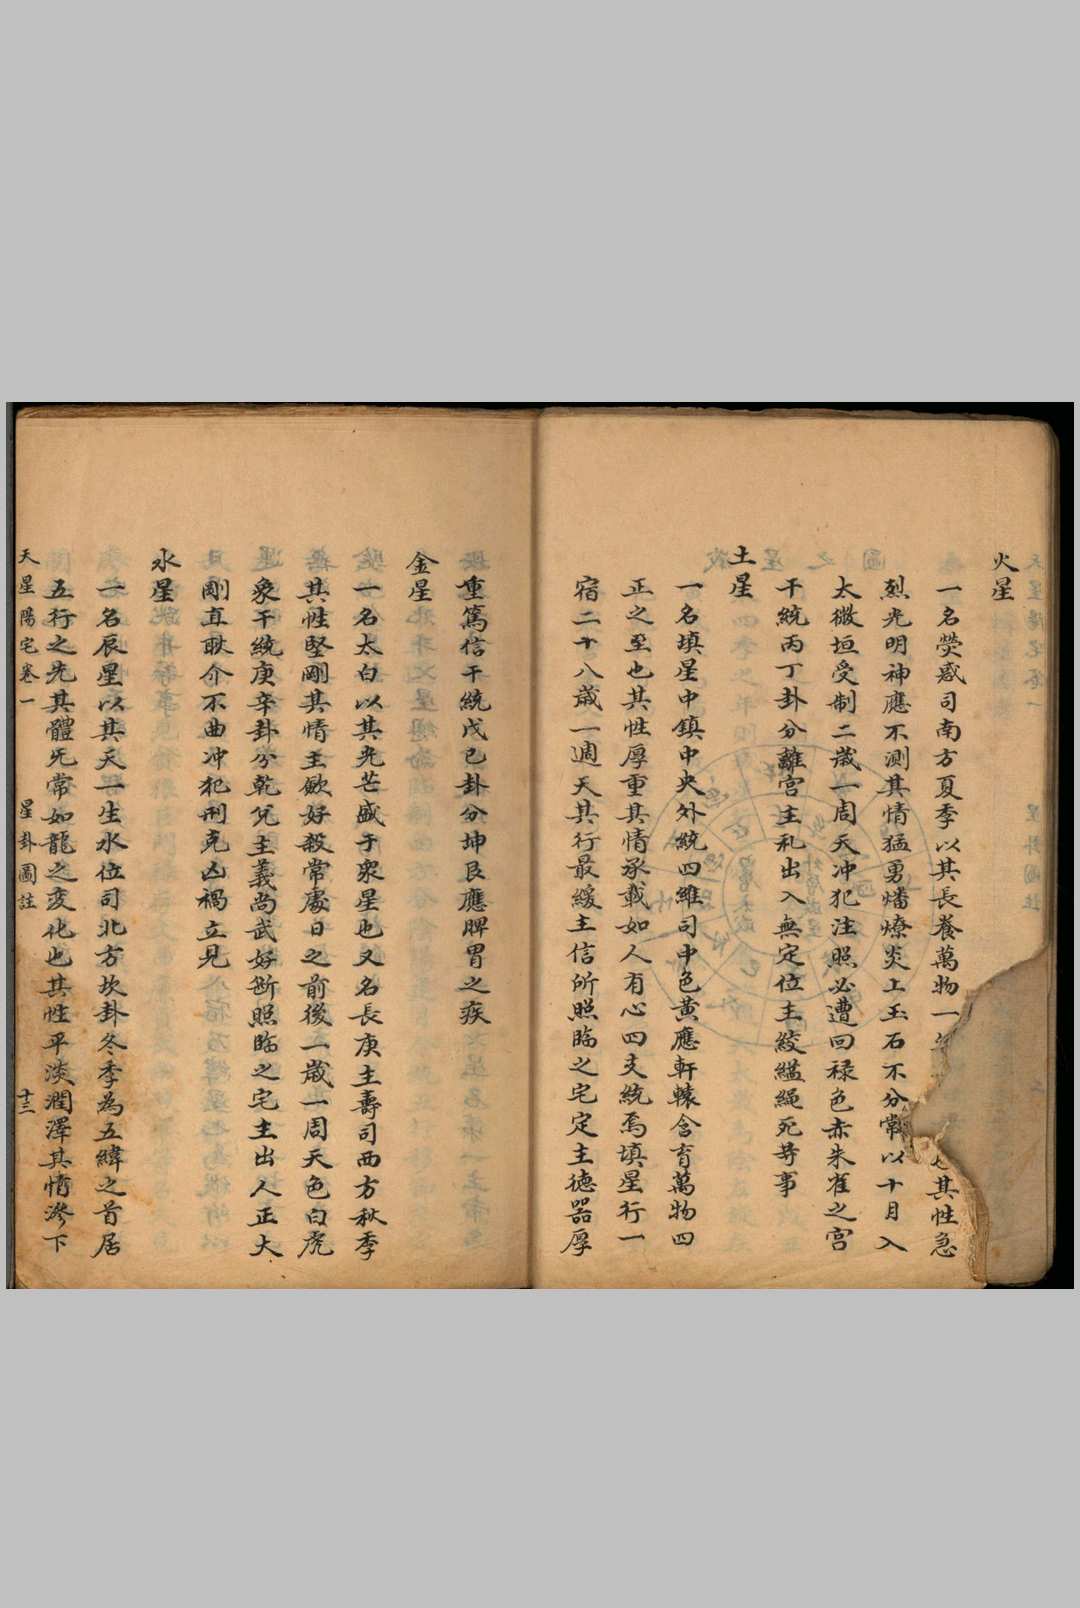 火星
一名熒惑司南方夏季以其長養萬物一
其性急
烈光明神應不測其情猛勇燔燎炎上玉石不分常以十月入
太微垣受制二歲一周天冲犯注照必遭回祿色赤朱雀之宮
干統丙丁卦分離宮主礼出入無定位主絞縊繩死等事
土星
一名填星中鎮中央外統四維司中色黃應軒轅含育萬物四
正之至也其性厚重其情承載如人有心四支統焉填星行一
宿二十八歲一週天其行最緩主信所照臨之宅定主德器厚
重篤信干統戊己卦分坤艮應脾胃之疾
金星
一名太白以其光芒盛于衆星也又名長庚主壽司西方秋季
其性堅剛其情主歛好殺常處日之前後一歲一周天色白虎
象干統庚辛卦分乾兌主義尚武好断照臨之宅主出人正大
剛直耿介不曲冲犯刑克凶禍立見
水星
一名辰星以其天一生水位司北方坎卦冬季為五緯之首居
五行之先其體旡常如龍之変化也其性平淡潤澤其情滲下
天星陽宅卷一 星卦圖註 十三